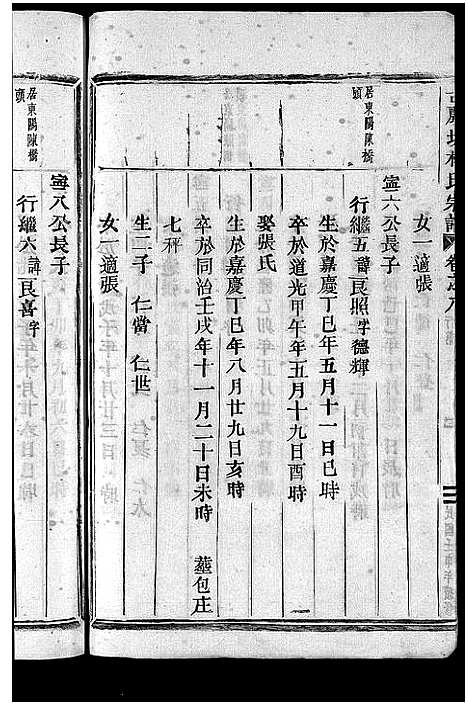 林氏宗譜 卷之八 行第
女一適張
居東陽陳橋
頭
寧六公長子
行繼五諱良照字德輝
生於嘉慶丁巳年五月十一日巳時
卒於道光甲午年五月十九日酉時
娶張氏
生於嘉慶丁巳年八月廿九日亥時
卒於同治壬戌年十一月二十日未時 葬包庄
七秤
生二子 仁當 仁世
女一適張
居東陽陳橋
頭
寧八公長子
行繼六諱良喜字